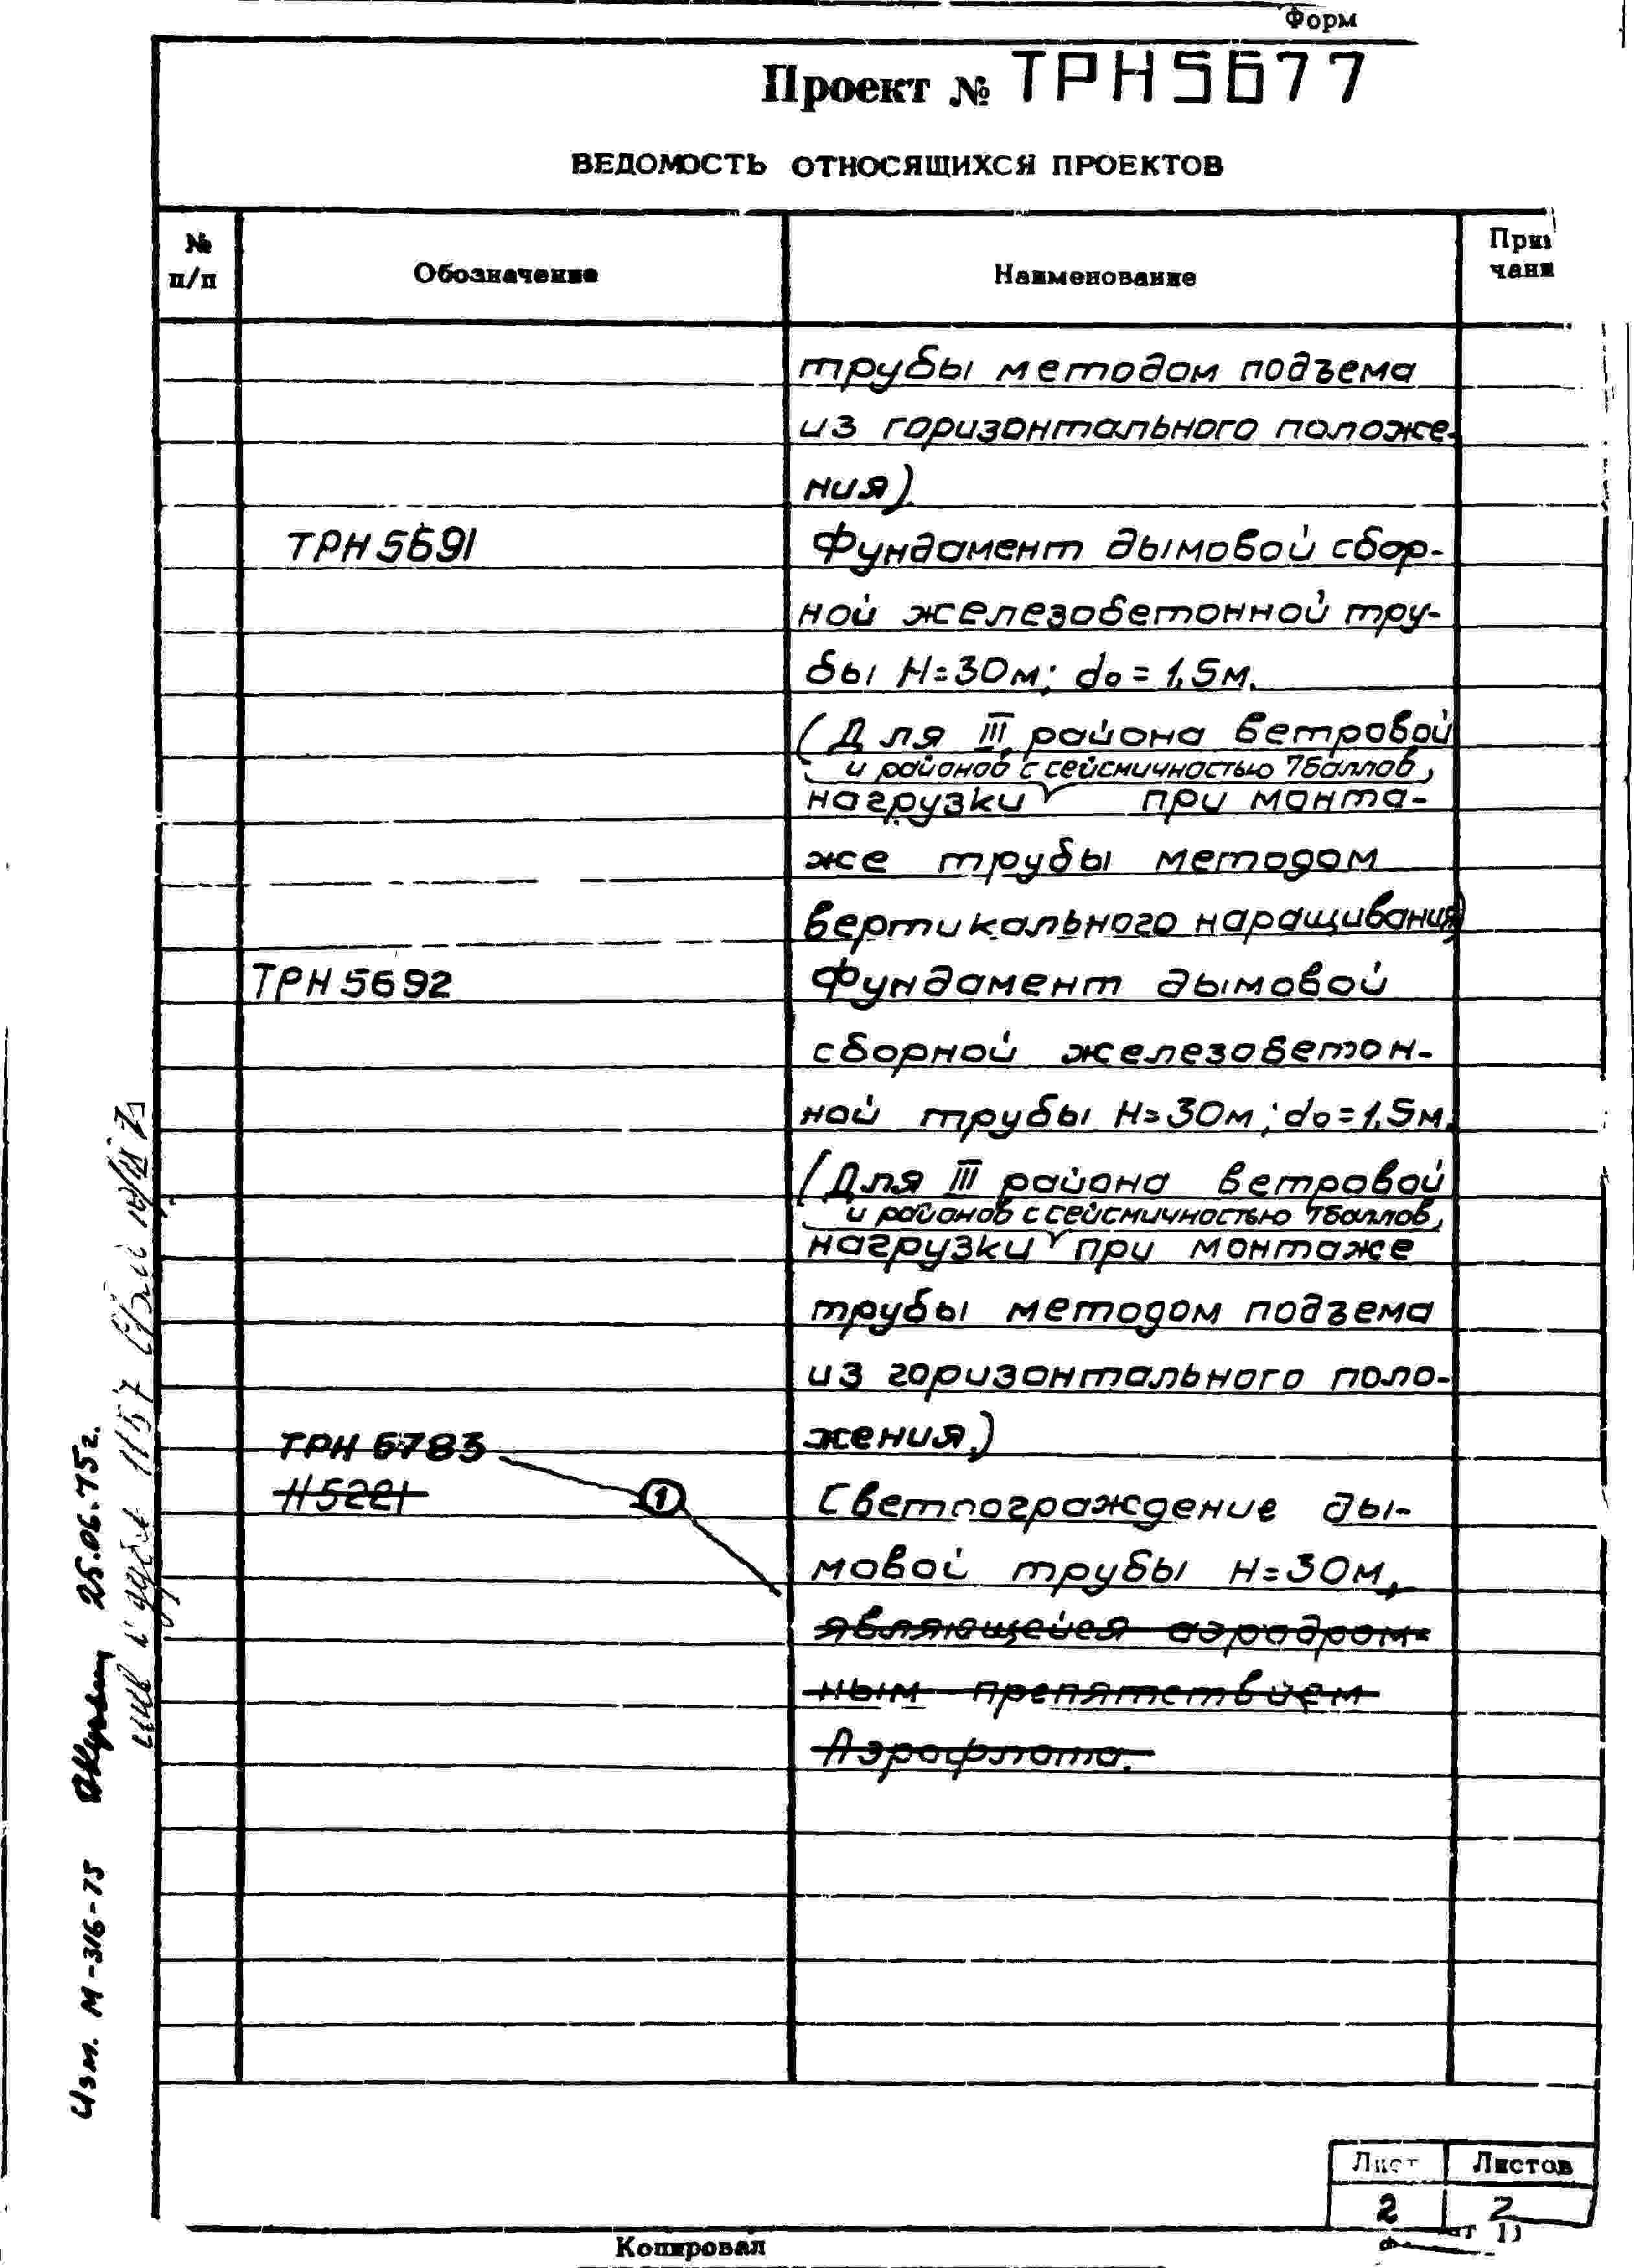 Форм
Проект № ТРН5677
ВЕДОМОСТЬ ОТНОСЯЩИХСЯ ПРОЕКТОВ
№ п/п
Обозначение
Наименование
трубы методом подъема
из горизонтального положе-
ния)
ТРН 5691
Фундамент дымовой сбор-
ной железобетонной тру-
бы Н=30м; do=1,5м.
(Для III района ветровой
и районов с сейсмичностью 7баллов,
нагрузки при монта-
же трубы методом
вертикального наращивания)
ТРН 5692
Фундамент дымовой
сборной железобетон-
ной трубы Н=30м; do=1,5м.
(Для III района ветровой
и районов с сейсмичностью 7баллов,
нагрузки при монтаже
трубы методом подъема
из горизонтального поло-
жения.)
ТРН 6783
Н5221
1
Светоограждение ды-
мовой трубы Н=30м,
являющейся аэродром-
ным препятствием
Аэрофлота.
Изм. М-316-75
25.06.75г.
Лист
Листов
2
2
Копировал